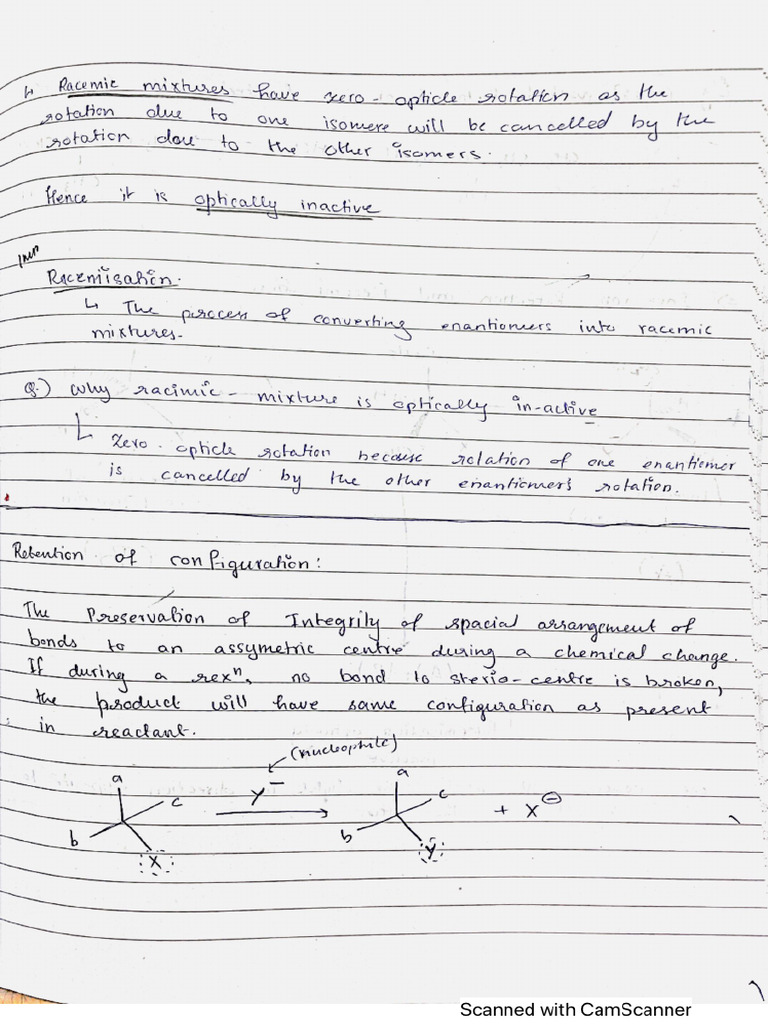 ↳ Racemic mixtures have zero - opticle rotation as the
rotation due to one isomere will be cancelled by the
rotation dou to the other isomers.
Hence it is optically inactive
Imp
Racemisation.
↳ The process of converting enantiomers into racemic
mixtures.
Q.) Why racimic - mixture is optically in-active
Zero - opticle rotation because rotation of one enantiomer
is cancelled by the other enantiomer's rotation.
Retention of configuration:
The Preservation of Integrity of spacial arrangement of
bonds to an assymetric centre during a chemical change.
If during a rexⁿ, no bond to sterio-centre is broken,
the product will have same configuration as present
in reactant.
(nucleophile)
a a
c Y⁻ c + X⊖
b b
X Y
Scanned with CamScanner